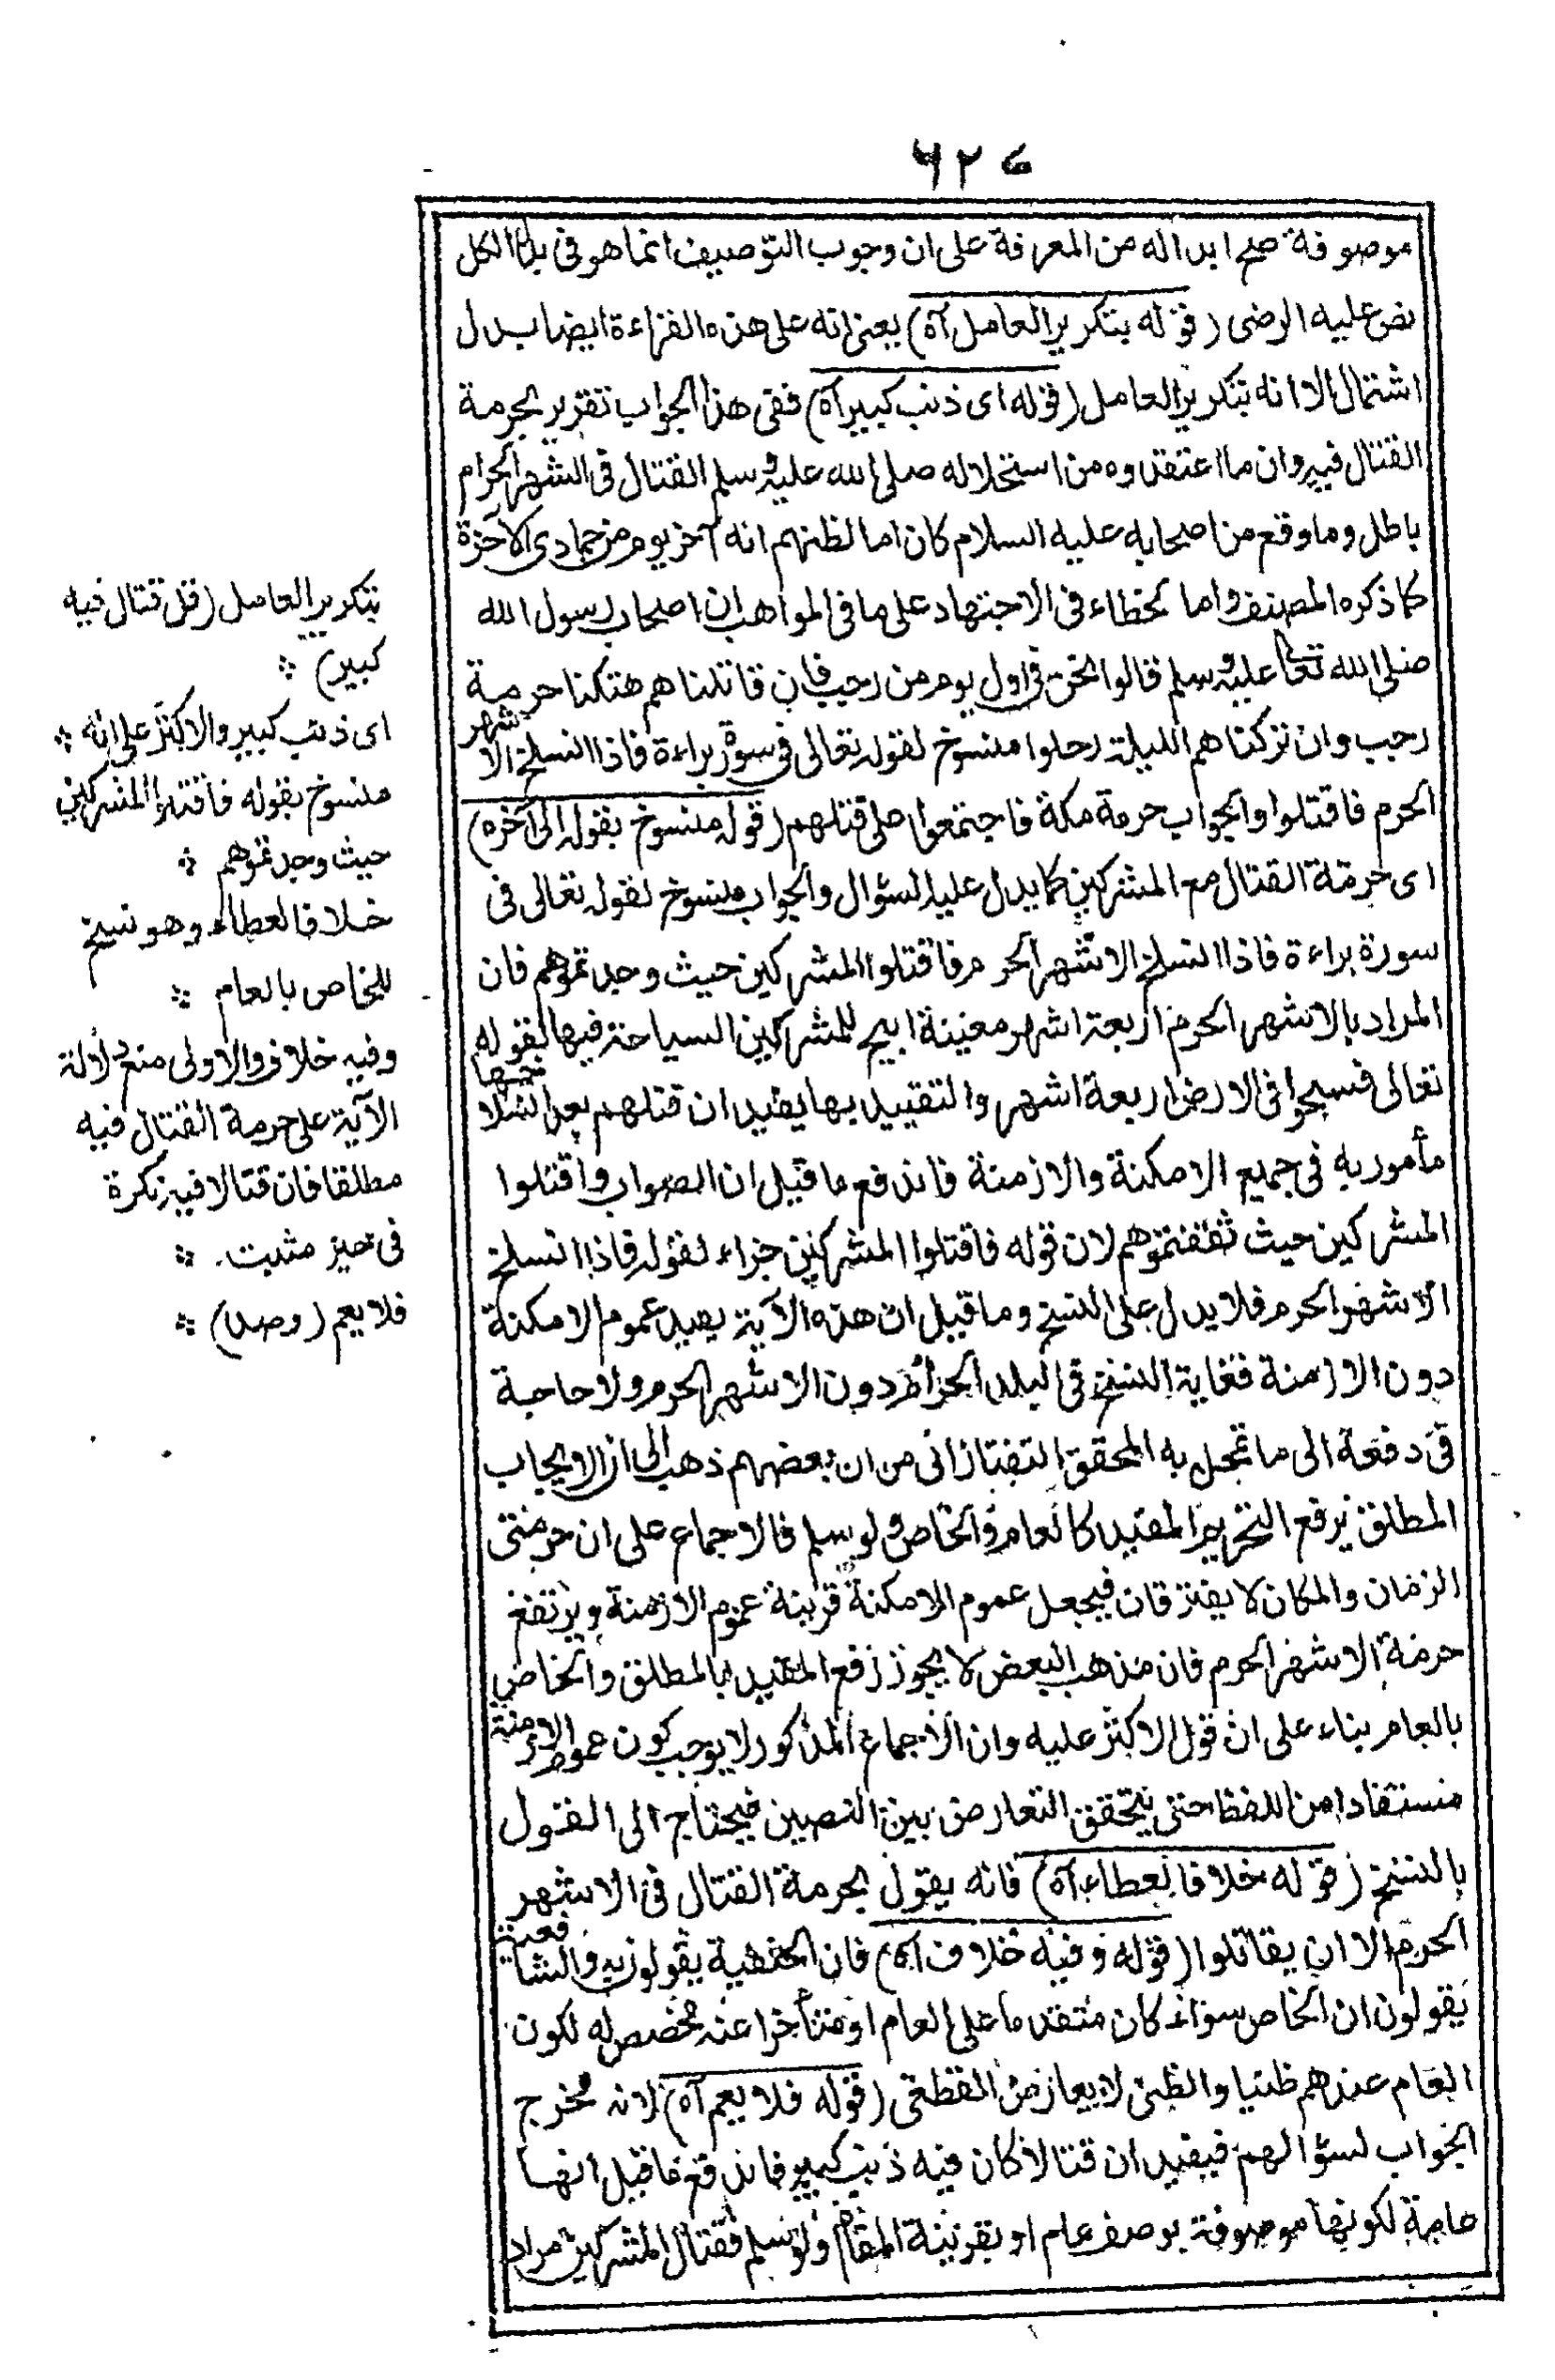 ٦٢٧
موصوفة صح ابداله من المعرفة على ان وجوب التوصيف انما هو فى بدل الكل
نص عليه الرضى (قوله بتكرير العامل آه) يعنى انه على هذه القراءة ايضا بدل
اشتمال الا انه بتكرير العامل (قوله اى ذنب كبير آه) ففى هذا الجواب تقرير لحرمة
القتال فيه وان ما اعتقدوه من استحلاله صلى الله عليه وسلم القتال فى الشهر الحرام
باطل وما وقع من اصحابه عليه السلام كان اما لظنهم انه آخر يوم من جمادى الآخرة
كما ذكره المصنف واما لخطاء فى الاجتهاد على ما فى المواهب ان اصحاب رسول الله
صلى الله تعالى عليه وسلم قالوا نحن فى اول يوم من رجب فان قاتلناهم هتكنا حرمة شهر
رجب وان تركناهم الليلة رحلوا منسوخ لقوله تعالى فى سورة براءة فاذا انسلخ الاشهر
الحرم فاقتلوا والجواب حرمة مكة فاجتمعوا على قتلهم (قوله منسوخ بقوله الى آخره)
اى حرمة القتال مع المشركين كما يدل عليه السؤال والجواب منسوخ لقوله تعالى فى
سورة براءة فاذا انسلخ الاشهر الحرم فاقتلوا المشركين حيث وجدتموهم فان
المراد بالاشهر الحرم اربعة اشهر معينة ابيح للمشركين السياحة فيها لقوله
تعالى فسيحوا فى الارض اربعة اشهر والتقييد بها يفيد ان قتلهم بعد انسلاخها
مأمور به فى جميع الامكنة والازمنة فاندفع ما قيل ان الصواب واقتلوا
المشركين حيث ثقفتموهم لان قوله فاقتلوا المشركين جزاء لقوله فاذا انسلخ
الاشهر الحرم فلا يدل على النسخ وما قيل ان هذه الآية يفيد عموم الامكنة
دون الازمنة فغاية النسخ فى البلد الحرام دون الاشهر الحرم ولا حاجة
فى دفعه الى ما تمحل به المحقق التفتازانى من ان بعضهم ذهب الى ان الايجاب
المطلق يرفع التحريم المقيد كالعام والخاص ولو سلم فالاجماع على ان حرمتى
الزمان والمكان لا يفترقان فيجعل عموم الامكنة قرينة عموم الازمنة ويرتفع
حرمة الاشهر الحرم فان مذهب البعض لا يجوز رفع المقيد بالمطلق والخاص
بالعام بناء على ان قول الاكثر عليه وان الاجماع المذكور لا يوجب كون عموم الازمنة
مستفادا من اللفظ حتى يتحقق التعارض بين النصين فيحتاج الى القول
بالنسخ (قوله خلافا لعطاء آه) فانه يقول بحرمة القتال فى الاشهر
الحرم الا ان يقاتلوا (قوله وفيه خلاف آه) فان الحنفية يقولون به والشافعية
يقولون ان الخاص سواء كان متقدما على العام او متأخرا عنه مخصص له لكون
العام عندهم ظنيا والظنى لا يعارض القطعى (قوله فلا يعم آه) لانه مخرج
الجواب لسؤالهم فيفيد ان قتالا كان فيه ذنب كبير فاندفع ما قيل انها
عامة لكونها موصوفة بوصف عام او بقرينة المقام ولو سلم فقتال المشركين مراد
بتكرير العامل (قل قتال فيه
كبير) ⁘
اى ذنب كبير والاكثر على انه ⁘
منسوخ بقوله فاقتلوا المشركين
حيث وجدتموهم ⁘
خلافا لعطاء وهو نسخ
للخاص بالعام ⁘
وفيه خلاف والاولى منع دلالة
الآية على حرمة القتال فيه
مطلقا فان قتالا فيه نكرة
فى حيز مثبت ⁘
فلا يعم (وصد) ⁘